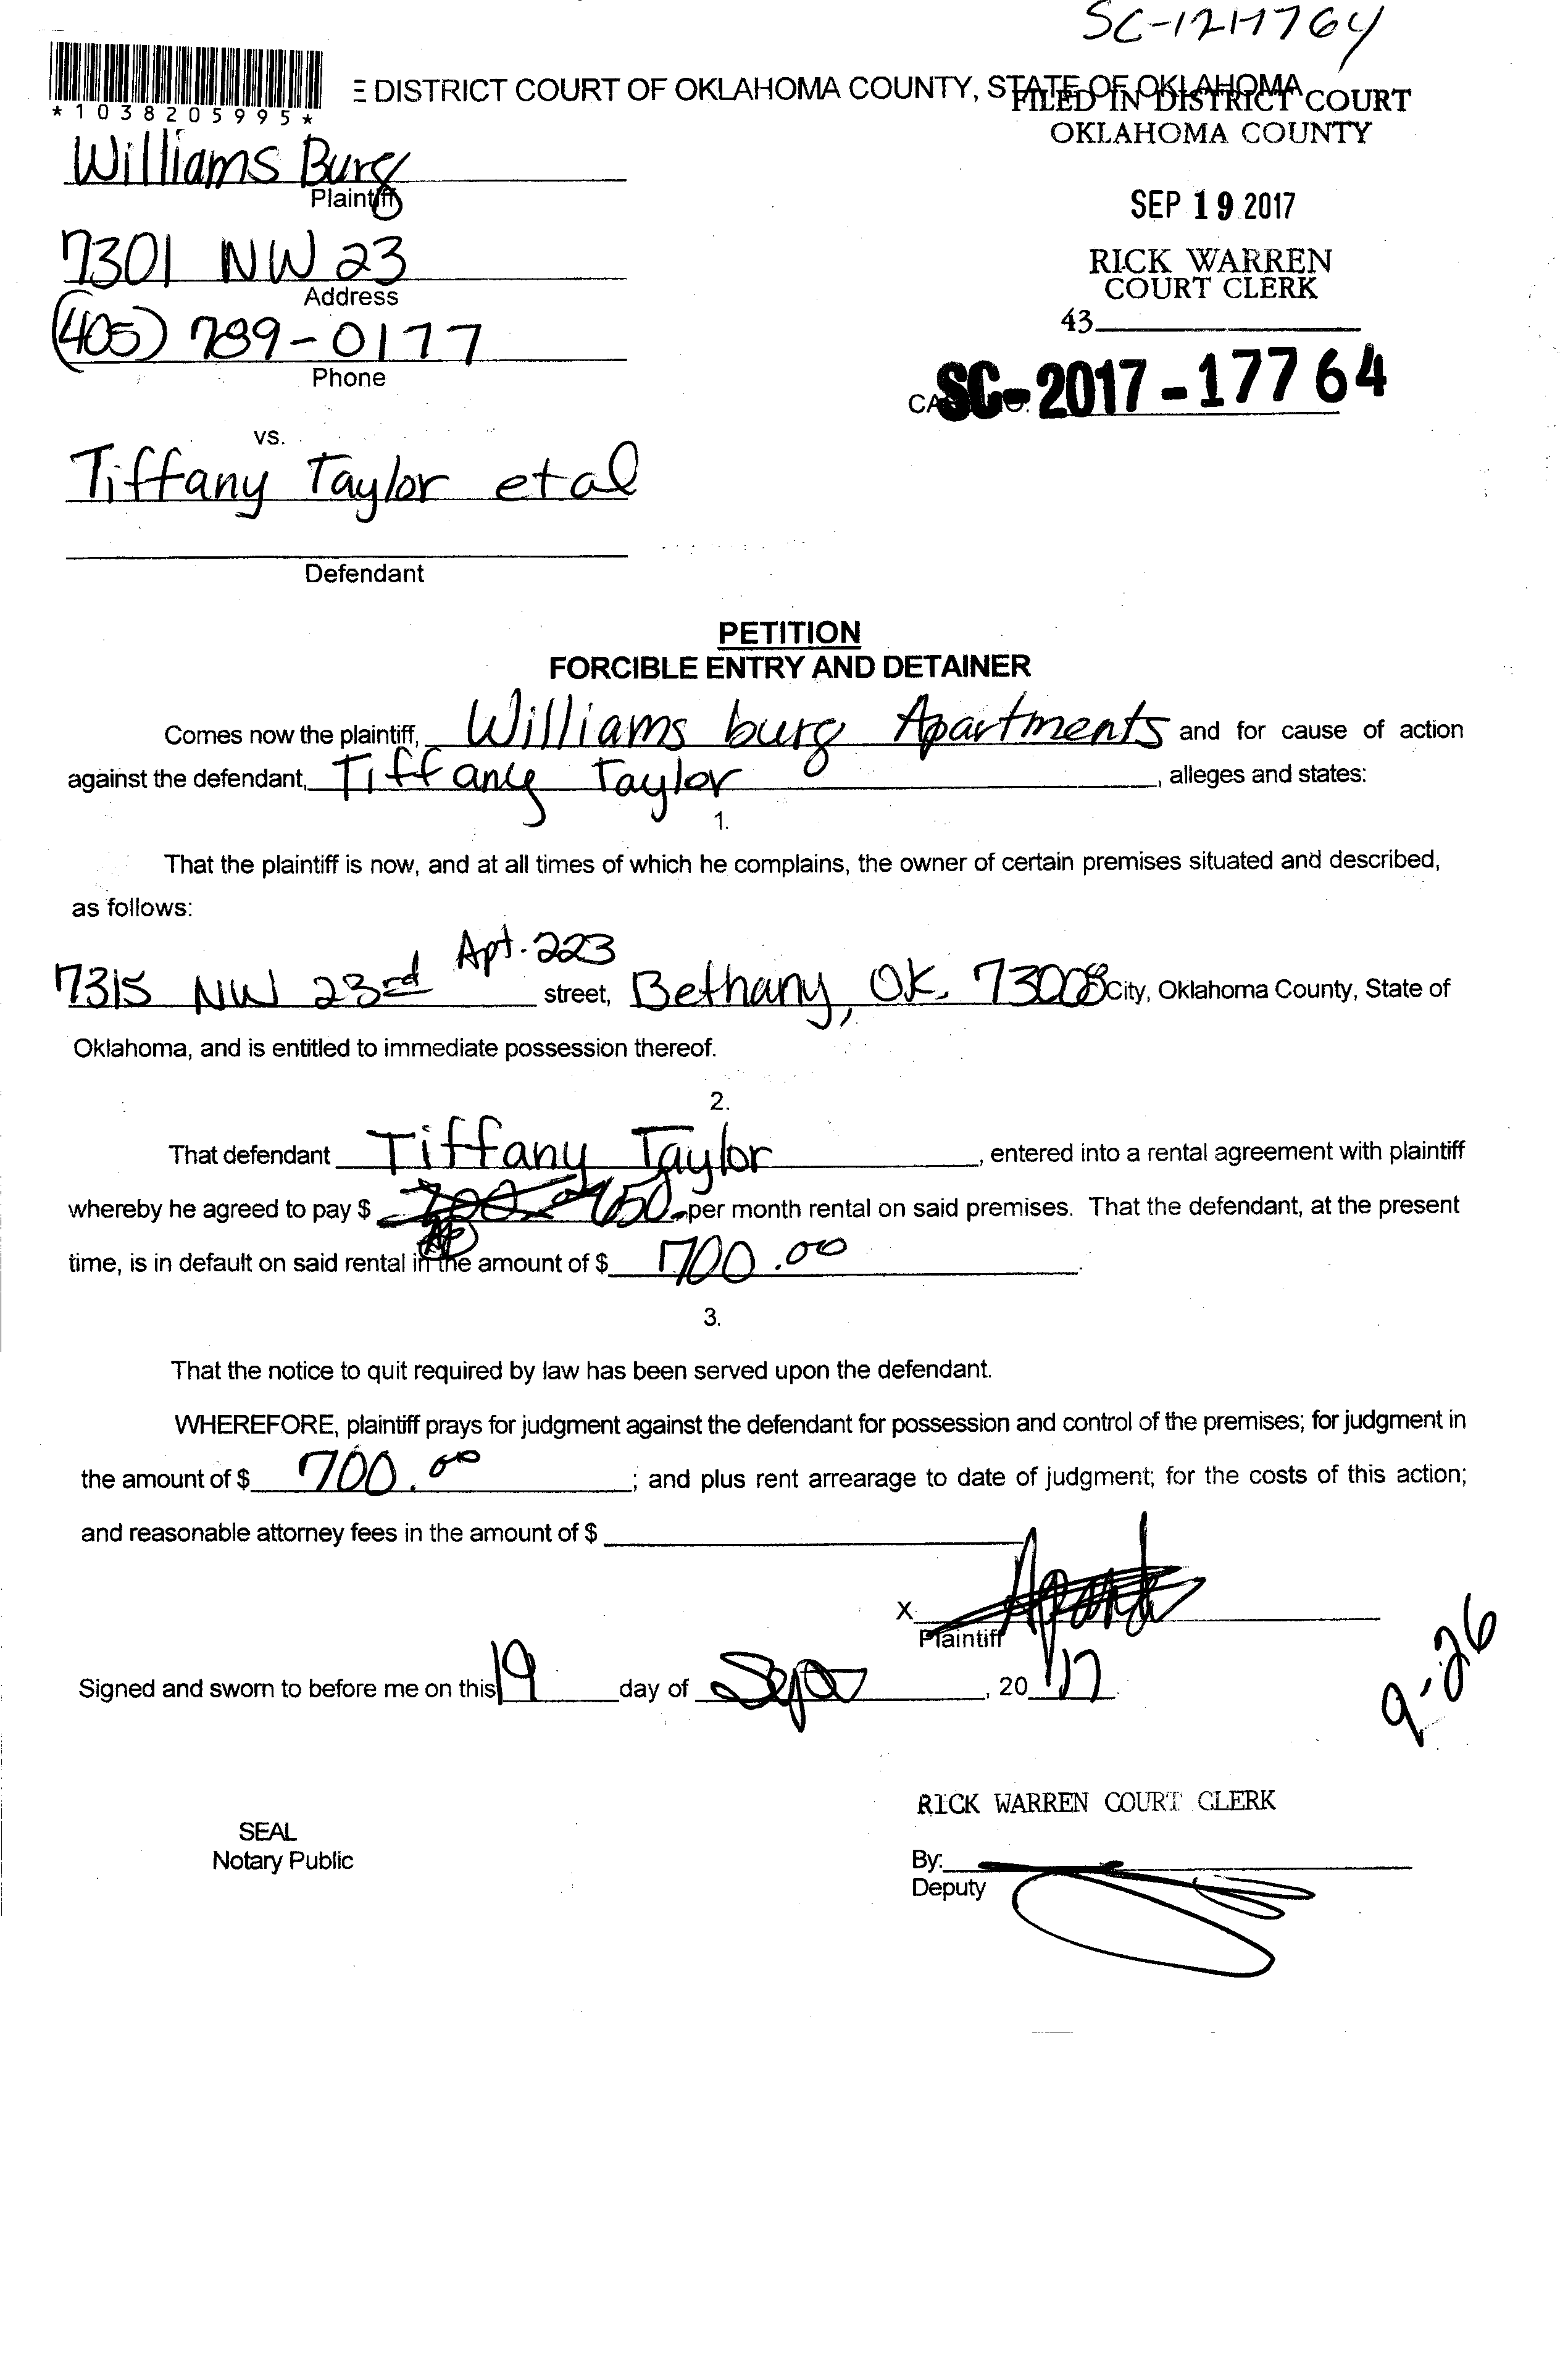 SC-1217764
*1038205995*
E DISTRICT COURT OF OKLAHOMA COUNTY, STATE OF OKLAHOMA
FILED IN DISTRICT COURT
OKLAHOMA COUNTY
Williams Burg
Plaintiff
SEP 19 2017
7301 NW 23
Address
RICK WARREN
COURT CLERK
43
(405) 789-0177
Phone
SC-2017-17764
vs.
Tiffany Taylor et al
Defendant
PETITION
FORCIBLE ENTRY AND DETAINER
Comes now the plaintiff, Williams burg Apartments and for cause of action
against the defendant, Tiffany Taylor, alleges and states:
1.
That the plaintiff is now, and at all times of which he complains, the owner of certain premises situated and described,
as follows:
Apt. 223
7315 NW 23rd street, Bethany, OK. 73008 City, Oklahoma County, State of
Oklahoma, and is entitled to immediate possession thereof.
2.
That defendant Tiffany Taylor, entered into a rental agreement with plaintiff
whereby he agreed to pay $ per month rental on said premises. That the defendant, at the present
time, is in default on said rental in the amount of $ 700.00.
3.
That the notice to quit required by law has been served upon the defendant.
WHEREFORE, plaintiff prays for judgment against the defendant for possession and control of the premises; for judgment in
the amount of $ 700.00; and plus rent arrearage to date of judgment; for the costs of this action;
and reasonable attorney fees in the amount of $
X
Plaintiff
Signed and sworn to before me on this 19 day of Sept, 2017.
9-26
RICK WARREN COURT CLERK
SEAL
Notary Public
By:
Deputy